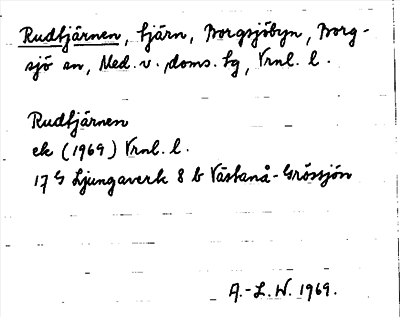 Rudtjärnen, tjärn, Borgsjöbyn, Borg-
sjö sn, Med. v. doms. tg, Vrnl. l.
Rudtjärnen
ek (1969) Vrnl. l.
17 G Ljungaverk 8 b Västanå-Grössjön
A.-L. W. 1969.